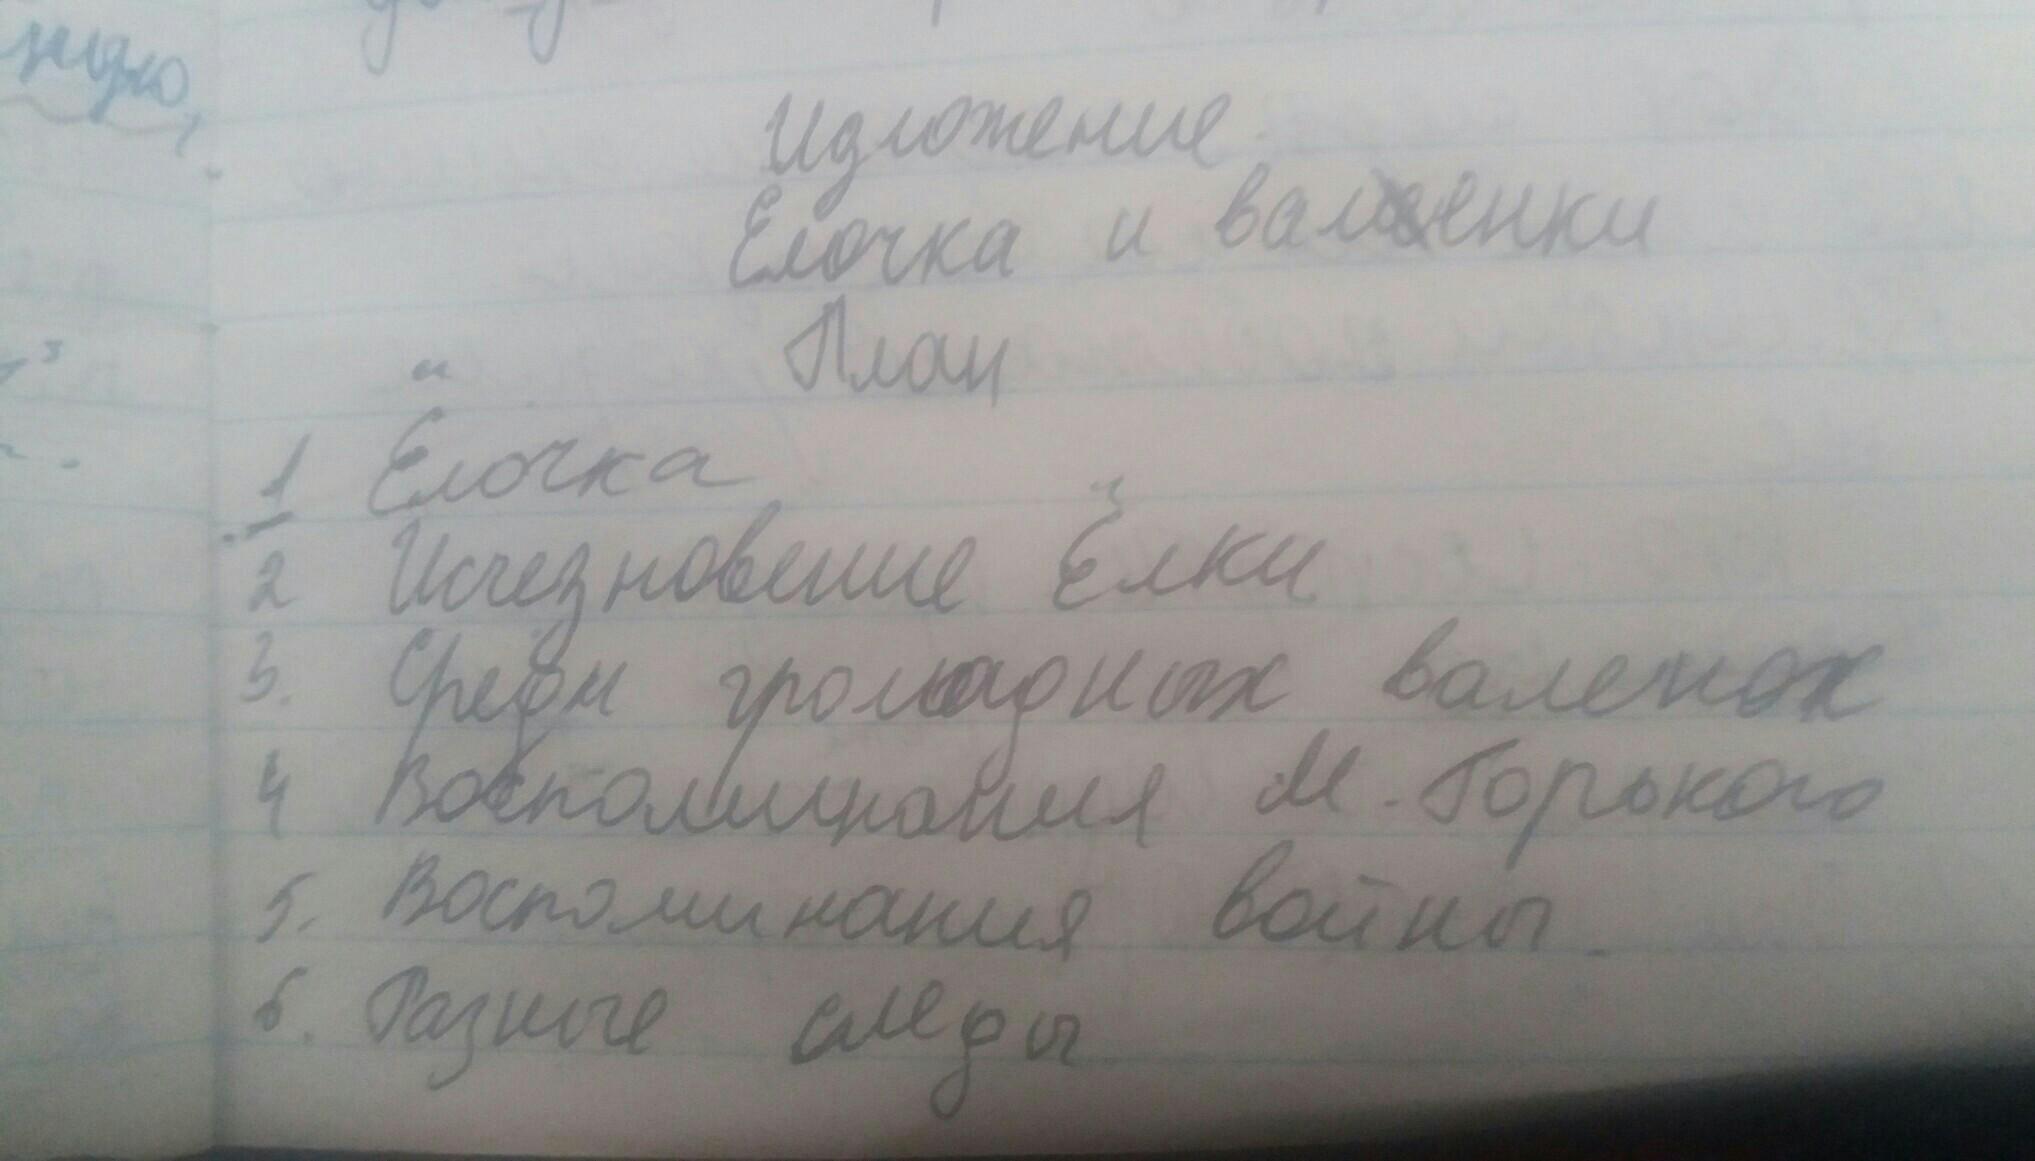 Изложение
Елочка и валенки
План
1 Ёлочка
2 Исчезновение Ёлки
3. Среди громадных валенок
4 Воспоминания М. Горького
5. Воспоминания войны.
6. Разные следы